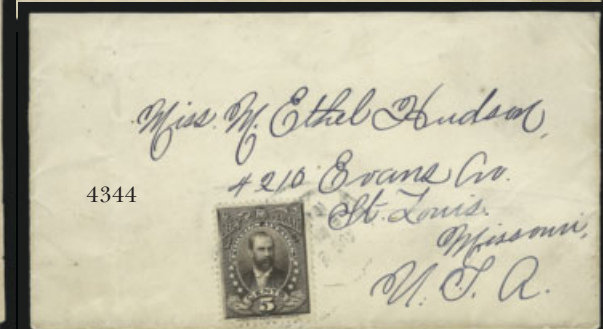 Miss. M. Ethel Hudson,
4210 Evans Av.
4344
St. Louis.
Missouri,
U. S. A.
5